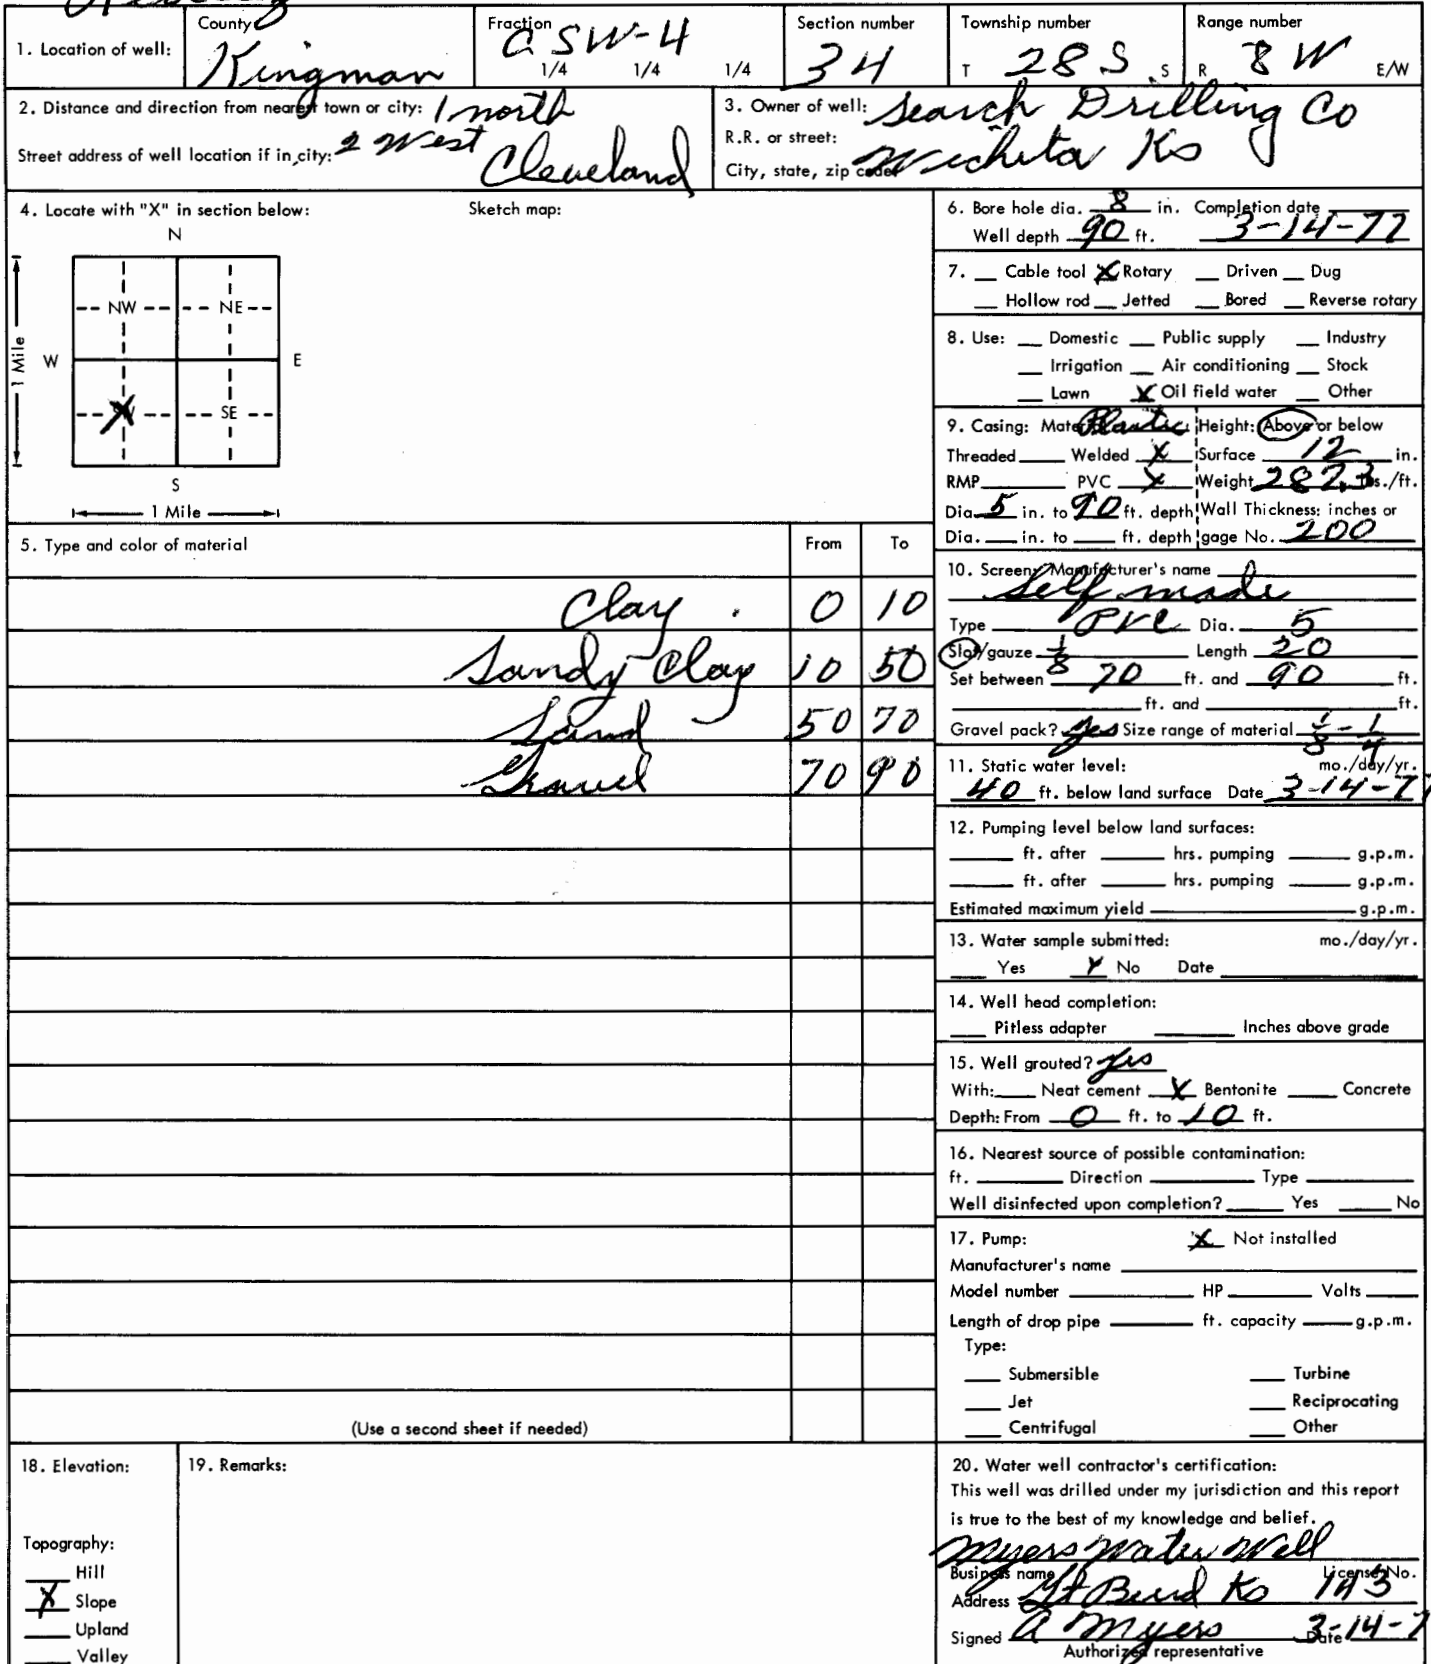 County Fraction Section number Township number Range number
1. Location of well: Kingman C SW-4 34 T 28 S S R 8 W E/W
1/4 1/4 1/4
2. Distance and direction from nearest town or city: 1 north
2 West
Street address of well location if in city: Cleveland
3. Owner of well: Search Drilling Co
R.R. or street:
City, state, zip code: Wichita Ks
4. Locate with "X" in section below: Sketch map:
N
NW NE
W E
1 Mile
X SE
S
1 Mile
5. Type and color of material From To
Clay 0 10
Sandy Clay 10 50
Sand 50 70
Gravel 70 90
(Use a second sheet if needed)
6. Bore hole dia. 8 in. Completion date
Well depth 90 ft. 3-14-77
7. Cable tool X Rotary Driven Dug
Hollow rod Jetted Bored Reverse rotary
8. Use: Domestic Public supply Industry
Irrigation Air conditioning Stock
Lawn X Oil field water Other
9. Casing: Material Plastic Height: Above or below
Threaded Welded X Surface 12 in.
RMP PVC X Weight 282.3 lbs./ft.
Dia. 5 in. to 90 ft. depth Wall Thickness: inches or
Dia. in. to ft. depth gage No. 200
10. Screen: Manufacturer's name
Self made
Type PVC Dia. 5
Slot/gauze 1/8 Length 20
Set between 70 ft. and 90 ft.
ft. and ft.
Gravel pack? yes Size range of material 1/8 - 1/4
11. Static water level: mo./day/yr.
40 ft. below land surface Date 3-14-77
12. Pumping level below land surfaces:
ft. after hrs. pumping g.p.m.
ft. after hrs. pumping g.p.m.
Estimated maximum yield g.p.m.
13. Water sample submitted: mo./day/yr.
Yes X No Date
14. Well head completion:
Pitless adapter Inches above grade
15. Well grouted? yes
With: Neat cement X Bentonite Concrete
Depth: From 0 ft. to 10 ft.
16. Nearest source of possible contamination:
ft. Direction Type
Well disinfected upon completion? Yes No
17. Pump: X Not installed
Manufacturer's name
Model number HP Volts
Length of drop pipe ft. capacity g.p.m.
Type:
Submersible Turbine
Jet Reciprocating
Centrifugal Other
18. Elevation:
Topography:
Hill
X Slope
Upland
Valley
19. Remarks:
20. Water well contractor's certification:
This well was drilled under my jurisdiction and this report
is true to the best of my knowledge and belief.
Myers Water Well
Business name License No.
Address Gt Bend Ks 143
Signed A Myers Date 3-14-7
Authorized representative